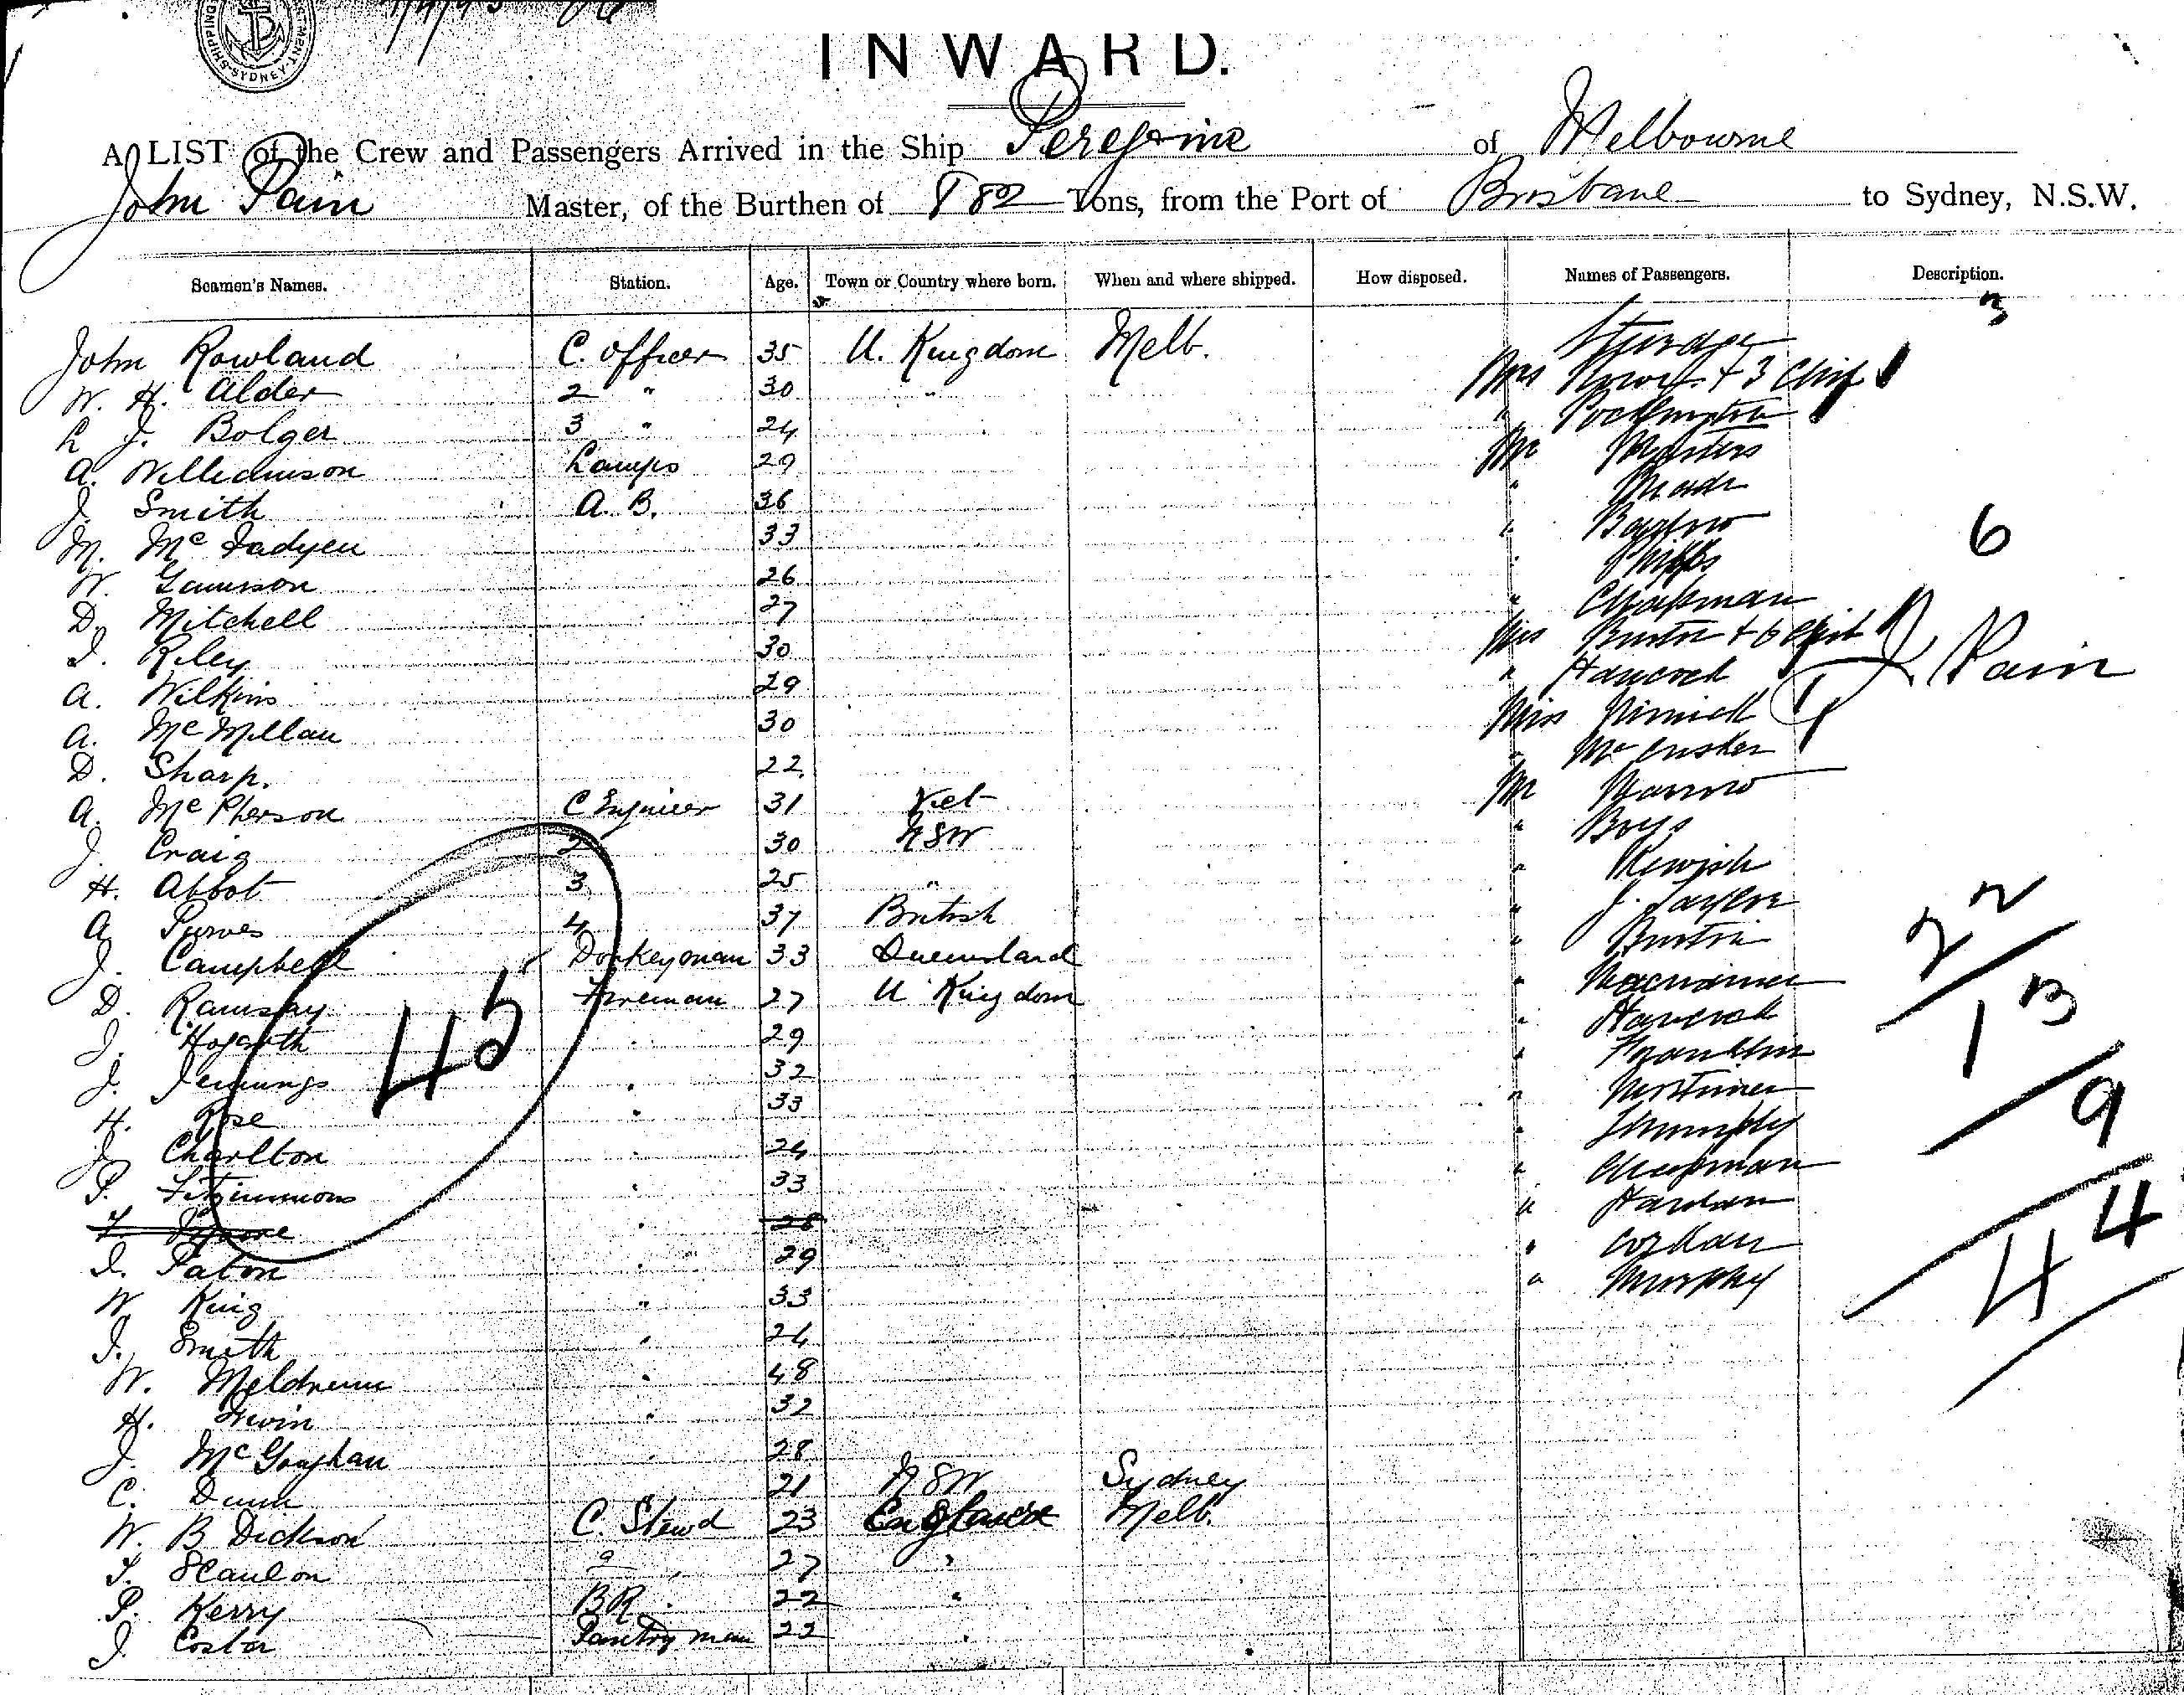 INWARD.
A LIST of the Crew and Passengers Arrived in the Ship Peregrine of Melbourne
John Pain Master, of the Burthen of 882 Tons, from the Port of Brisbane to Sydney, N.S.W.
Seamen's Names. Station. Age. Town or Country where born. When and where shipped. How disposed. Names of Passengers. Description.
3
John Rowland C. Officer 35 U. Kingdom Melb.
W. H. Alder 2 " 30 " Mrs + 3 Chif
L J. Bolger 3 " 24 "
A. Williamson Lamps 29 Mr Masters
J. Smith A. B. 36 " Meade
M. Mc Fadyen 33 " 6
W. 26 Phipps
D. Mitchell 27 " Chapman
J. Riley 30 Mrs Burton + 6
A. Wilkins 29 " Hancock J. Pain
A. Mc Millan 30 Miss
D. Sharp. 22 " Mc Cusker
A. Mc Pherson C Engineer 31 Vict Mr
J. Craig 2 30 NSW " Boys
H. Abbot 3 25 " " Kewish
A Purves 4 37 British " J. Taylor 22
J. Campbell Donkeyman 33 Queensland " Burton
D. Ramsay Fireman 27 U Kingdom "
45
J. Hogarth " 29 " Hancock 13
J. Jennings " 32 " Franklin
H. Rose " 33 " Mortimer 9
J Charlton " 24 "
P. Fitzimmons " 33 " Chapman
" 28 "
J. Paton " 29 " 44
W King " 33 " Murphy
J. Smith " 24
W. Meldrum " 48
H. Irwin " 32
J. Mc Graghan 28
C. Dunn 21 NSW Sydney
W. B Dickson C. Stewd 23 England Melb.
T. Scanlon 2 " 27 "
P. Kerry BR " 22 "
J. Costar Pantry man 22 "